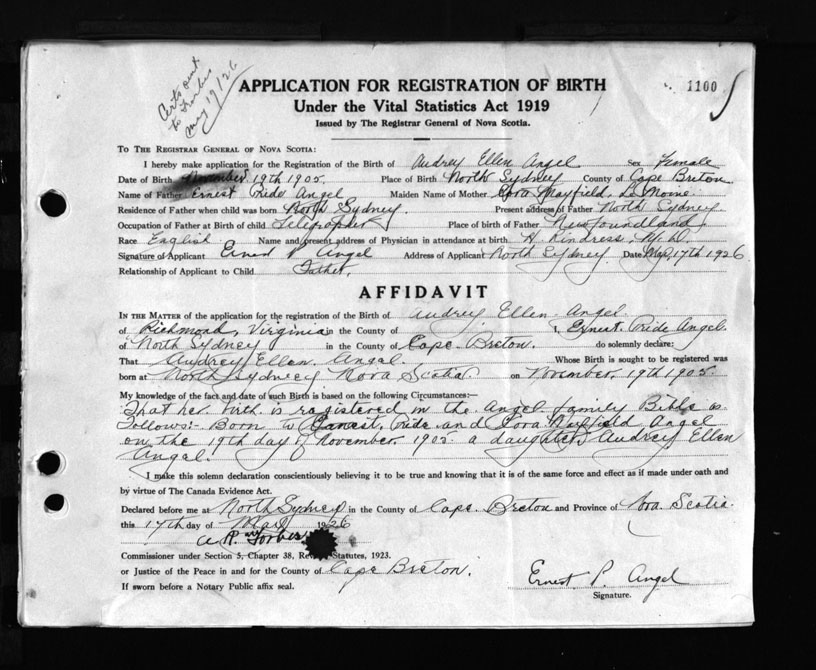 Certs sent
to Forbes
May 19/26
APPLICATION FOR REGISTRATION OF BIRTH
1100
Under the Vital Statistics Act 1919
Issued by The Registrar General of Nova Scotia.
TO THE REGISTRAR GENERAL OF NOVA SCOTIA:
I hereby make application for the Registration of the Birth of Audrey Ellen Angel Sex Female
Date of Birth November 19th 1905. Place of Birth North Sydney County of Cape Breton
Name of Father Ernest Pride Angel Maiden Name of Mother Cora Mayfield
Residence of Father when child was born North Sydney. Present address of Father North Sydney
Occupation of Father at Birth of child Telegrapher Place of birth of Father Newfoundland
Race English Name and present address of Physician in attendance at birth H. Rindress, M.D.
Signature of Applicant Ernest P. Angel Address of Applicant North Sydney Date May 17th 1926
Relationship of Applicant to Child Father.
AFFIDAVIT
IN THE MATTER of the application for the registration of the Birth of Audrey Ellen Angel
of Richmond, Virginia in the County of I, Ernest Pride Angel.
of North Sydney in the County of Cape Breton. do solemnly declare:
That Audrey Ellen Angel. Whose Birth is sought to be registered was
born at North Sydney Nova Scotia on November 19th 1905
My knowledge of the fact and date of such Birth is based on the following Circumstances:—
That her birth is registered in the Angel family Bible as
Follows:- Born to Ernest Pride and Cora Mayfield Angel
on the 19th day of November 1905 a daughter, Audrey Ellen
Angel.
I make this solemn declaration conscientiously believing it to be true and knowing that it is of the same force and effect as if made under oath and
by virtue of The Canada Evidence Act.
Declared before me at North Sydney in the County of Cape Breton and Province of Nova Scotia.
this 17th day of May 1926
A. R. Forbes
Commissioner under Section 5, Chapter 38, Re Statutes, 1923.
or Justice of the Peace in and for the County of Cape Breton.
Ernest P. Angel
If sworn before a Notary Public affix seal.
Signature.